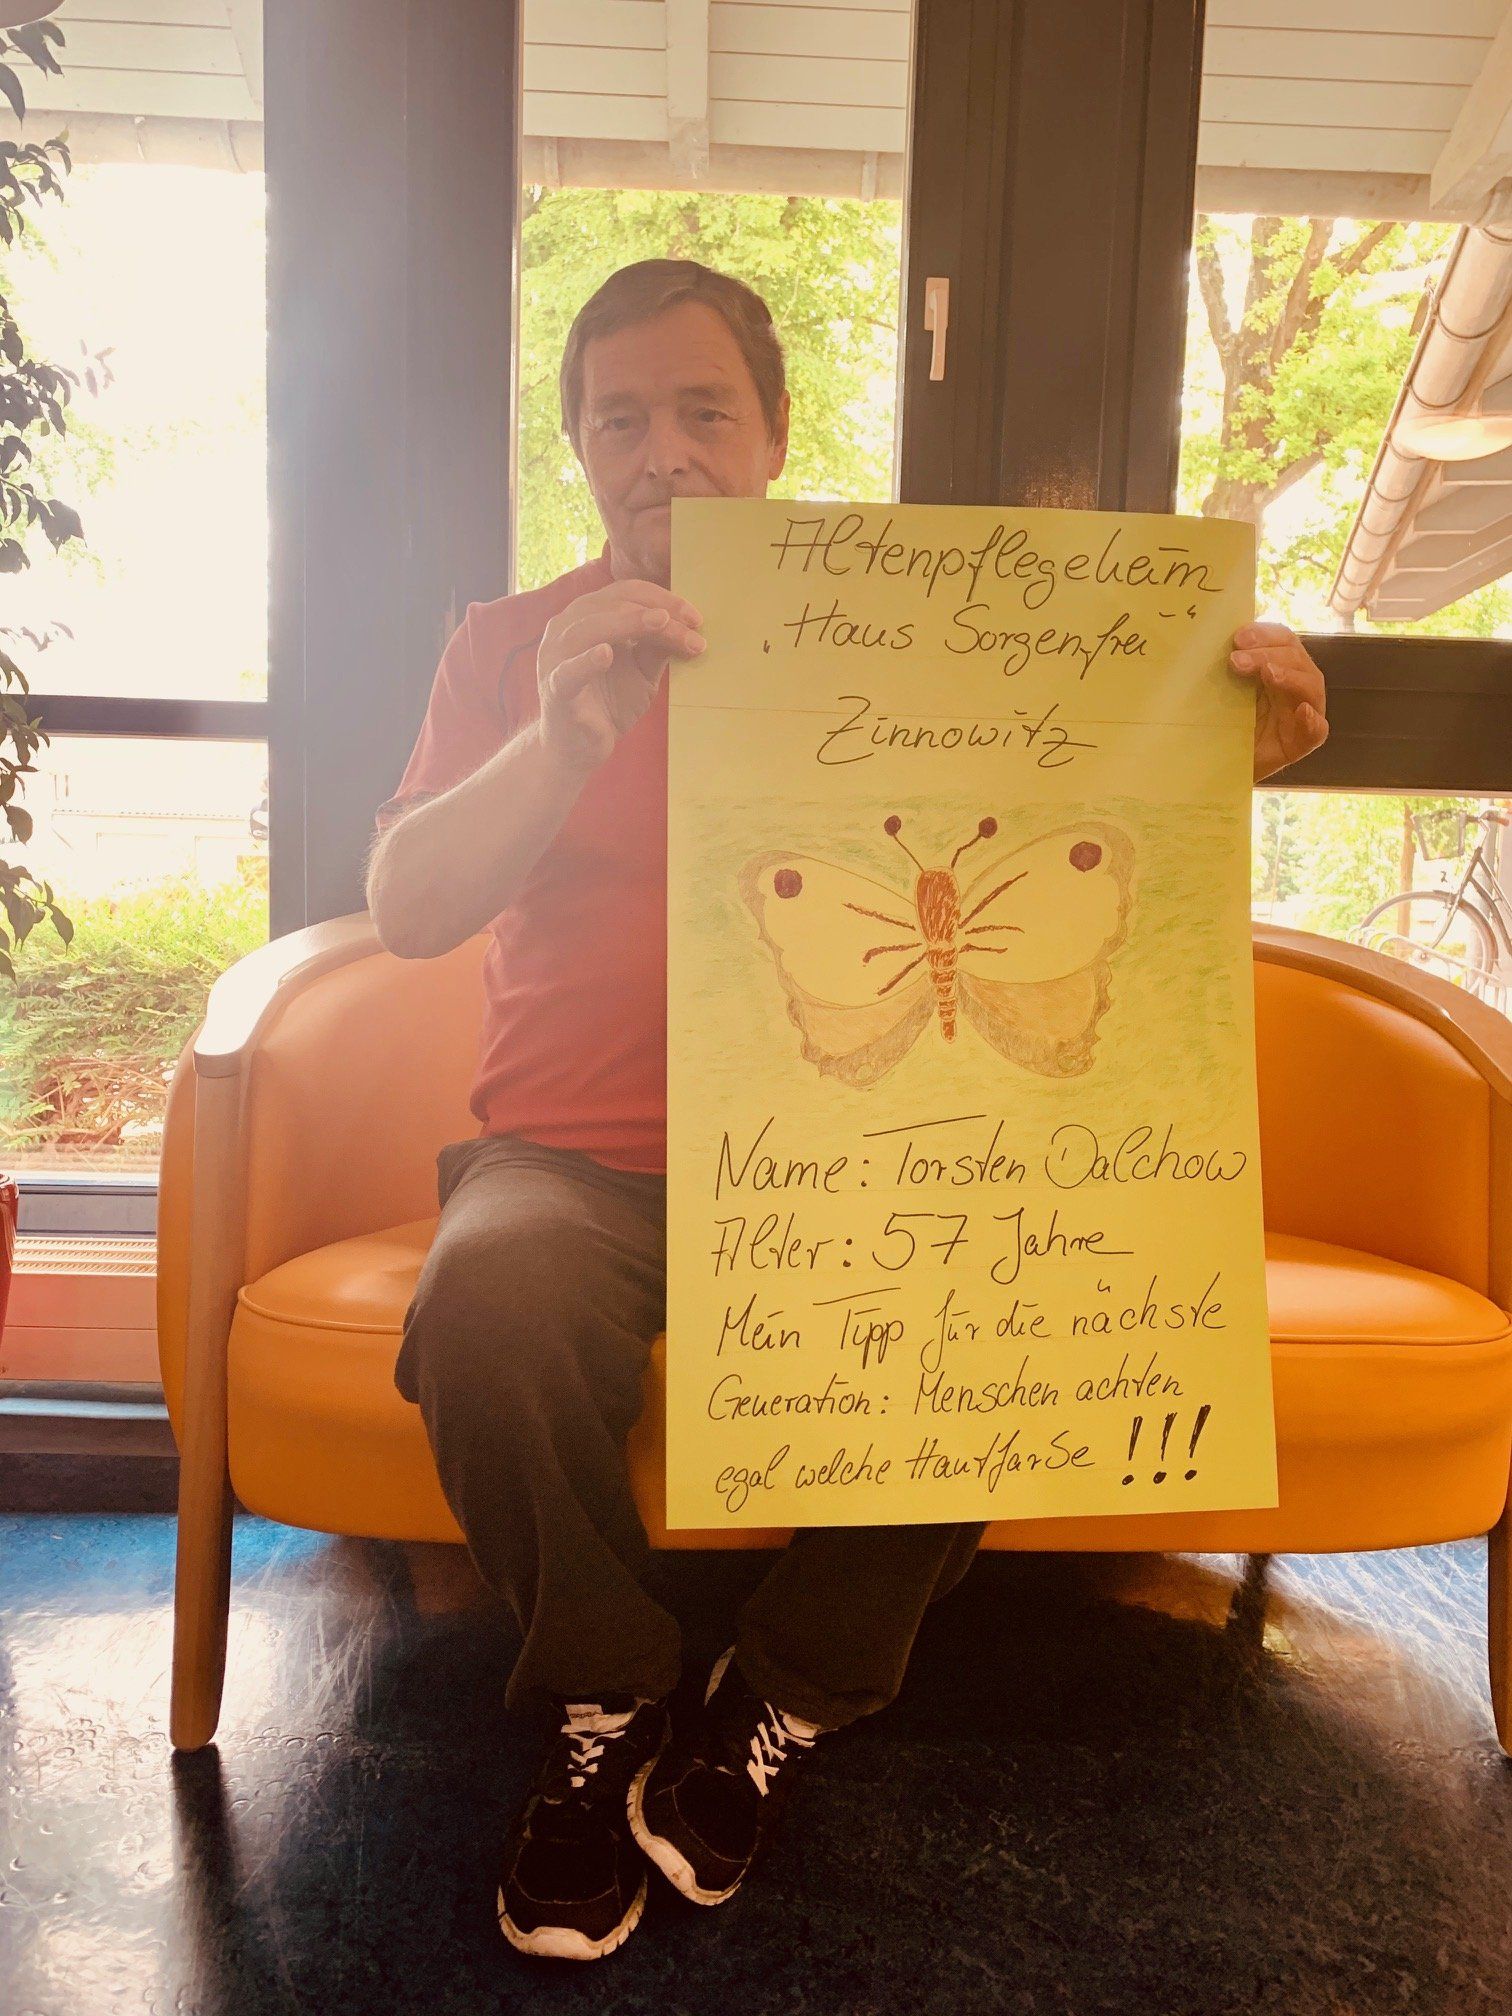 Altenpflegeheim
„Haus Sorgenfrei“
Zinnowitz
Name: Torsten Dalchow
Alter: 57 Jahre
Mein Tipp für die nächste
Generation: Menschen achten
egal welche Hautfarbe !!!